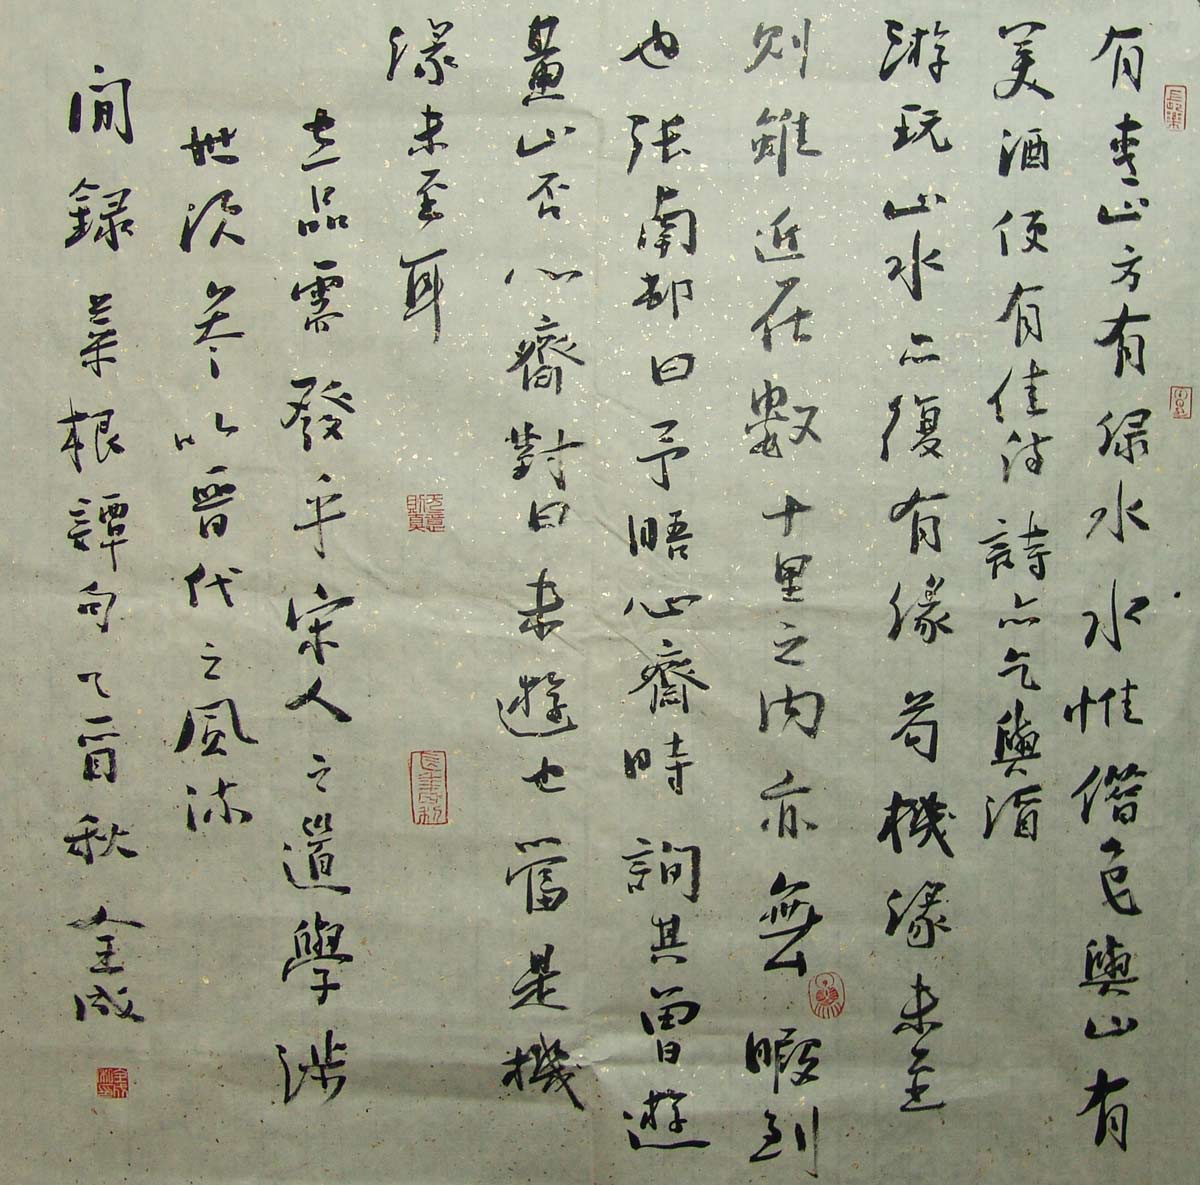 有青山方有绿水水惟借色與山有
美酒便有佳詩詩亦乞與酒
游玩山水亦復有緣苟機緣未至
則雖近在數十里之内亦無暇到
也張南邨曰予晤心齋時詢其曾遊
黃山否心齋對曰未遊也當是機
緣未至耳
立品需發乎宋人之道學涉
世須參以晉代之風流
閒錄菜根譚句乙酉秋全成